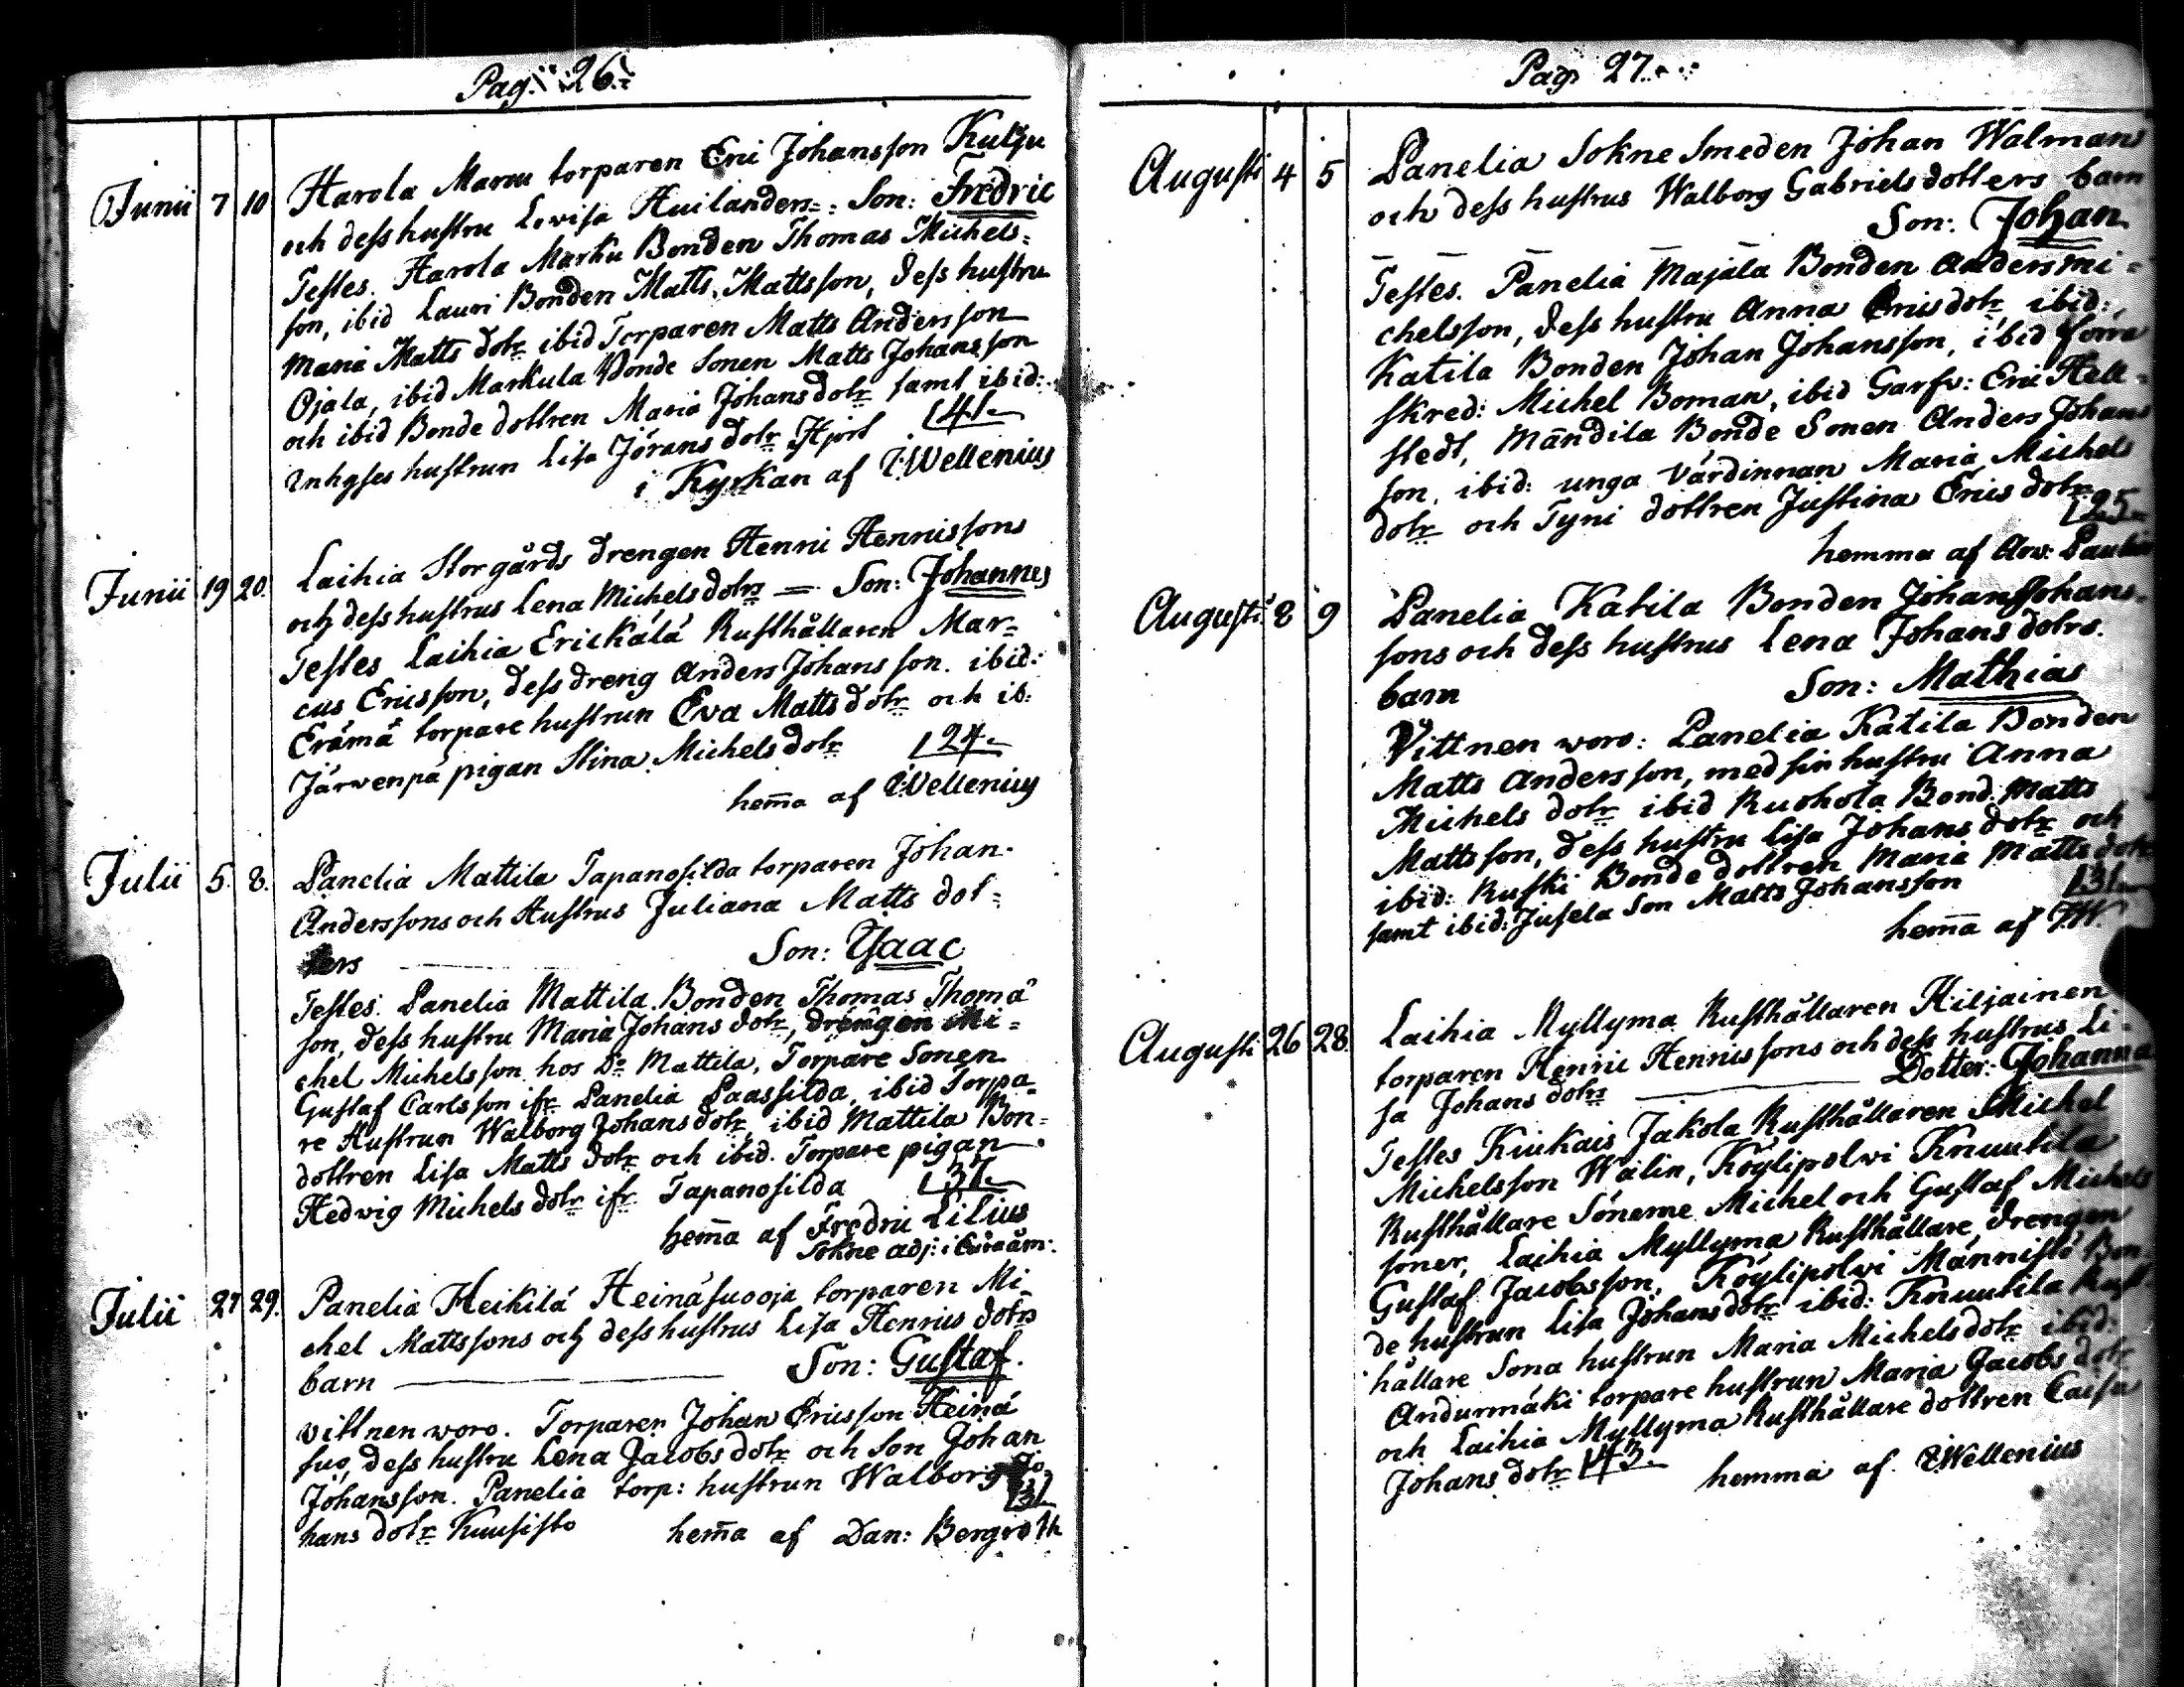 Pag. 26.
Junii 7 10 Harola Marcu torparen Eric Johansson Kulju
och dess hustru Lovisa Huilanders Son: Fredric
Testes. Harola Marku Bonden Thomas Michels=
son, ibid Lauri Bonden Matts Mattsson, dess hustru
Maria Matts dotr ibid Torparen Matts Andersson
Ojala, ibid Markula Bonde Sonen Matts Johansson
och ibid Bonde dottren Maria Johans dotr samt ibid:
Inhyses hustrun Lisa Jörans dotr Hjort 41.
i Kyrkan af I: Wellenius
Junii 19 20. Laihia Storgårds drengen Henric Henricssons
och dess hustrus Lena Michels dotrs = Son: Johannes
Testes Laihia Erickälä Rusthållaren Mar=
cus Ericsson, dess dreng Anders Johansson. ibid:
Erämä torpare hustrun Eva Matts dotr och ib:
Järwenpä pigan Stina Michels dotr 24.
hem̄a af I: Wellenius
Julii 5. 8. Panelia Mattila Tapanosilda torparen Johan
Anderssons och Hustrus Juliana Matts dot=
ters Son: Isaac
Testes. Panelia Mattila Bonden Thomas Thomä
son, dess hustru Maria Johans dotr, drengen Mi=
chel Michelsson hos Do Mattila, Torpare Sonen
Gustaf Carlsson ifr. Panelia Paassilda, ibid Torpa=
re Hustrun Walborg Johans dotr ibid Mattila Bon=
dottren Lisa Matts dotr och ibid. Torpare pigan
Hedvig Michels dotr ifr. Tapanosilda 37.
hem̄a af Fredric Lilius
Sokne adj: i Euraåm:
Julii 27 29. Panelia Heikilä Heinäsuooja torparen Mi
chel Mattssons och dess hustrus Lisa Henrics dotrs
barn Son: Gustaf.
vittnen woro. Torparen Johan Ericsson Heinä
suo, dess hustru Lena Jacobs dotr och Son Johan
Johansson. Panelia torp: hustrun Walborg Jo=
hans dotr Kuusisto 31. hem̄a af Dan: Bergroth
Pag. 27.
Augusti 4 5 Panelia Sokne Smeden Johan Walmans
och dess hustrus Walborg Gabriels dotters barn
Son: Johan
Testes. Panelia Majala Bonden Anders Mi=
chelsson, dess hustru Anna Erics dotr, ibid:
Katila Bonden Johan Johansson, ibid Sorra
skred: Michel Boman, ibid Garfv: Eric Hell=
stedt, Mändila Bonde Sonen Anders Johans
son, ibid: unga Värdinnan Maria Michels
dotr och Tyni dottren Justina Erics dotr 25.
hemma af Arv: Paulin
Augusti 8 9 Panelia Katila Bonden Johan Johans=
sons och dess hustrus Lena Johans dotrs.
barn Son: Mathias
Vittnen woro: Panelia Katila Bonden
Matts Andersson, med sin hustru Anna
Michels dotr ibid Ruohola Bond. Matts
Mattsson, dess hustru Lisa Johans dotr och
ibid: Ruski Bonde dottren Maria Matts dotr
samt ibid: Jusela Son Matts Johansson 31.
hem̄a af I.W.
Augusti 26 28. Laihia Myllyma Rusthållaren Hiljainen
torparen Henric Henricssons och dess hustrus Li=
sa Johans dotrs Dotter: Johanna
Testes Kiukais Jakola Rusthållaren Michel
Michelsson Walin, Köylipolvi Knuutila
Rusthållare Sönerne Michel och Gustaf Michels
söner, Laihia Myllyma Rusthållare drengen
Gustaf Jacobsson, Köylipolvi Männistö Bon=
de hustrun Lisa Johans dotr ibid: Knuutila Rust
hållare Sona hustrun Maria Michels dotr ibid:
Andurmäki torpare hustrun Maria Jacobs dotr
och Laihia Myllyma Rusthållare dottren Caisa
Johans dotr 43. hemma af I: Wellenius